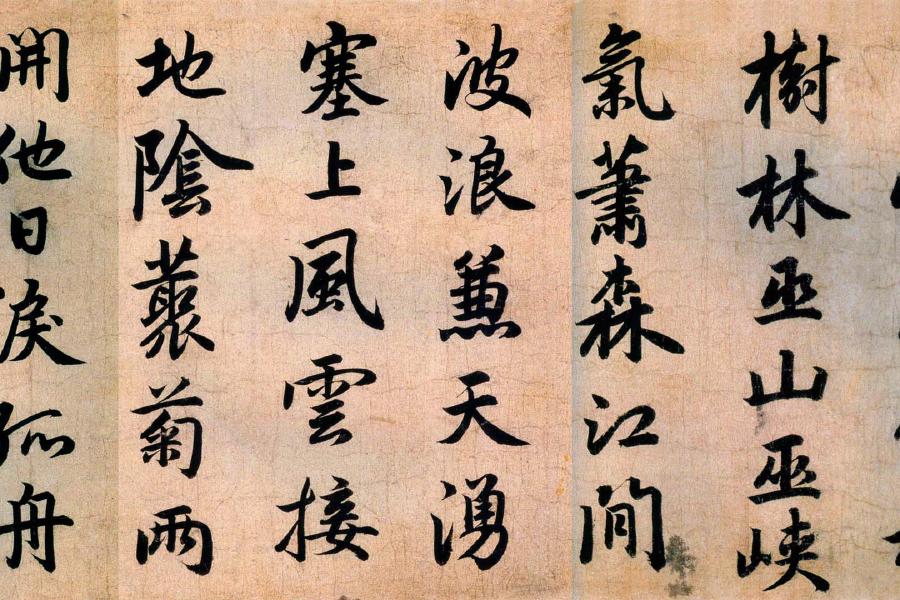 樹林巫山巫峽
氣蕭森江間
波浪蒹天湧
塞上風雲接
地陰藂菊兩
開他日淚孤舟